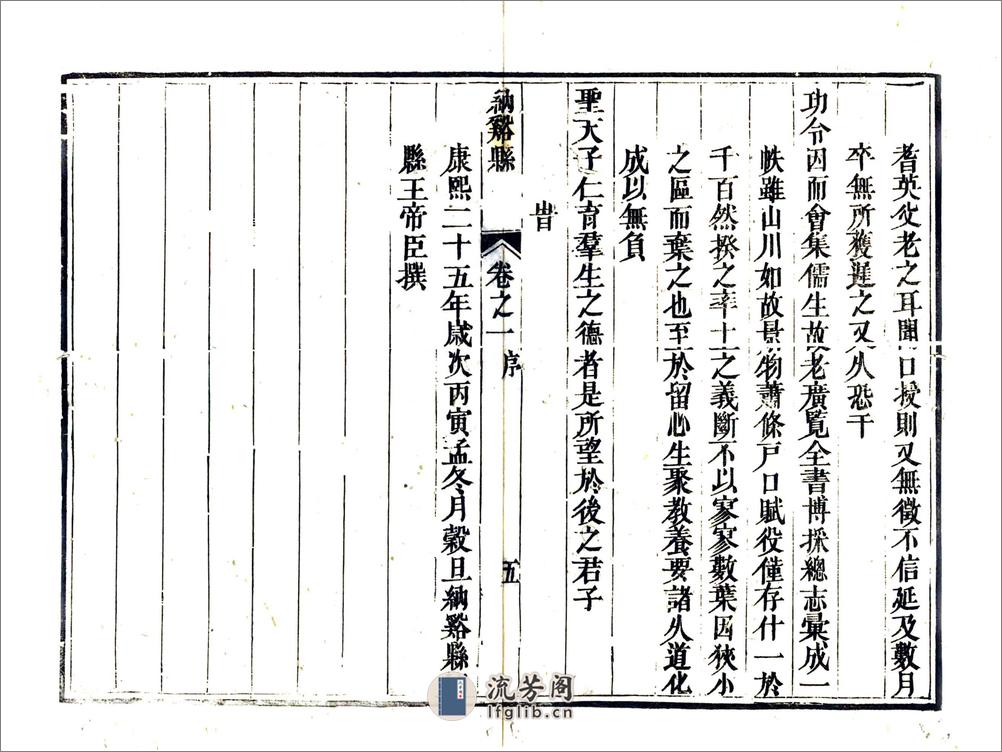 耆英父老之耳聞口授則又無徵不信延及數月
卒無所獲遲之又久恐干
功令因而會集儒生故老廣覧全書博採總志彙成一
帙雖山川如故景物蕭條戸口賦役僅存什一於
千百然揆之率土之義斷不以寥寥數葉因狹小
之區而棄之也至於留心生聚教養要諸久道化
成以無負
聖天子仁育羣生之德者是所望於後之君子
旹
納谿縣 卷之一 序 五
康熙二十五年歲次丙寅孟冬月穀旦納谿縣
縣王帝臣撰
流芳阁
lfglib.cn